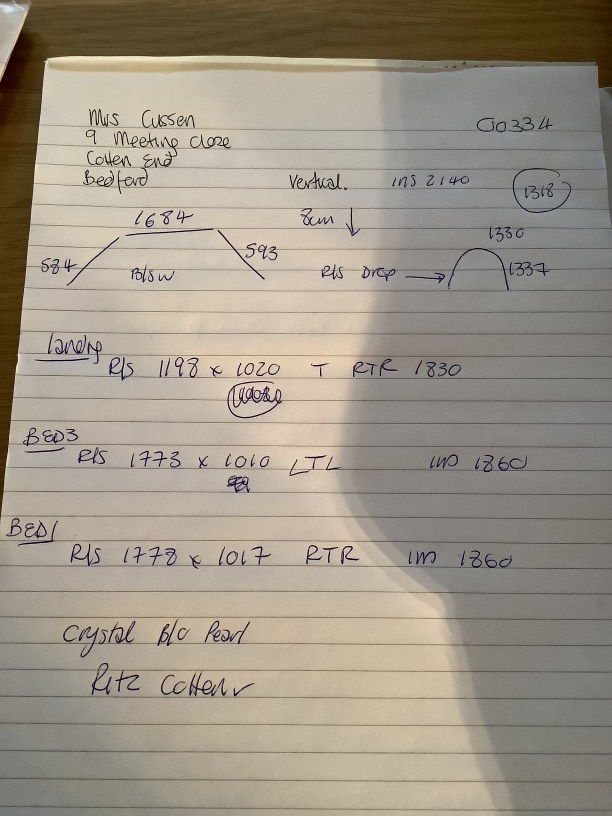 Mrs Cussen
9 Meeting Close
Cotten End
Bedford
00334
Vertical. INS 2140
1318
8cm
1684
584
593
B/SW
R/S Drop
1330
1337
landing
R/S 1198 x 1020 T RTR 1830
BED3
R/S 1773 x 1010 LTL 1860
BED1
R/S 1778 x 1017 RTR 1860
Crystal B/O Pearl
Ritz Cotten